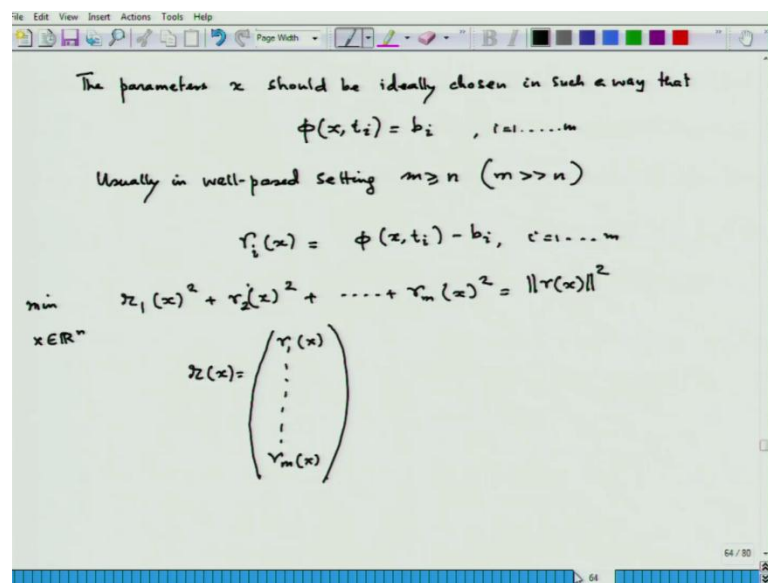 File Edit View Insert Actions Tools Help
Page Width
B I
The parameters x should be ideally chosen in such a way that
φ(x, tᵢ) = bᵢ , i=1......m
Usually in well-posed setting m ≥ n (m >> n)
rᵢ(x) = φ(x, tᵢ) - bᵢ, i=1....m
min r₁(x)² + r₂(x)² + ..... + rₘ(x)² = ||r(x)||²
x ∈ ℝⁿ
r(x) = ( r₁(x)
⋮
rₘ(x) )
64 / 80
64